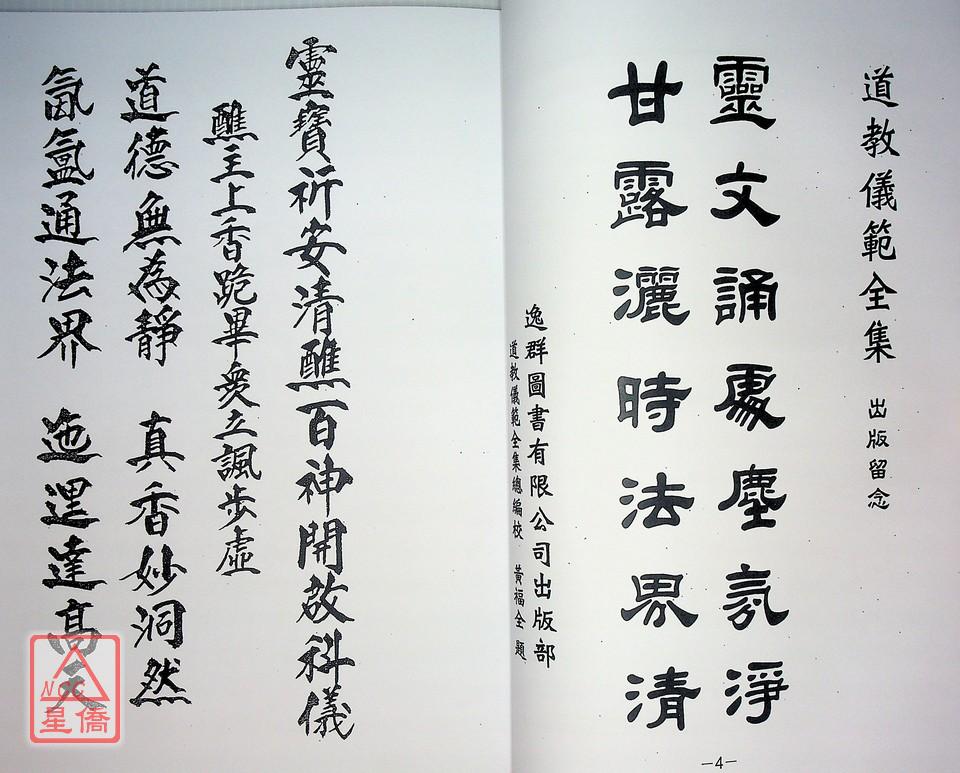 道教儀範全集 出版留念
靈文誦處塵氛淨
甘露灑時法界清
逸群圖書有限公司出版部
道教儀範全集總編校 黃福全 題
-4-
靈寶祈安清醮百神開啟科儀
醮主上香跪畢眾立諷步虛
道德無為靜 真香妙洞然
氤氳通法界 迤邐達高天
NCC
星僑